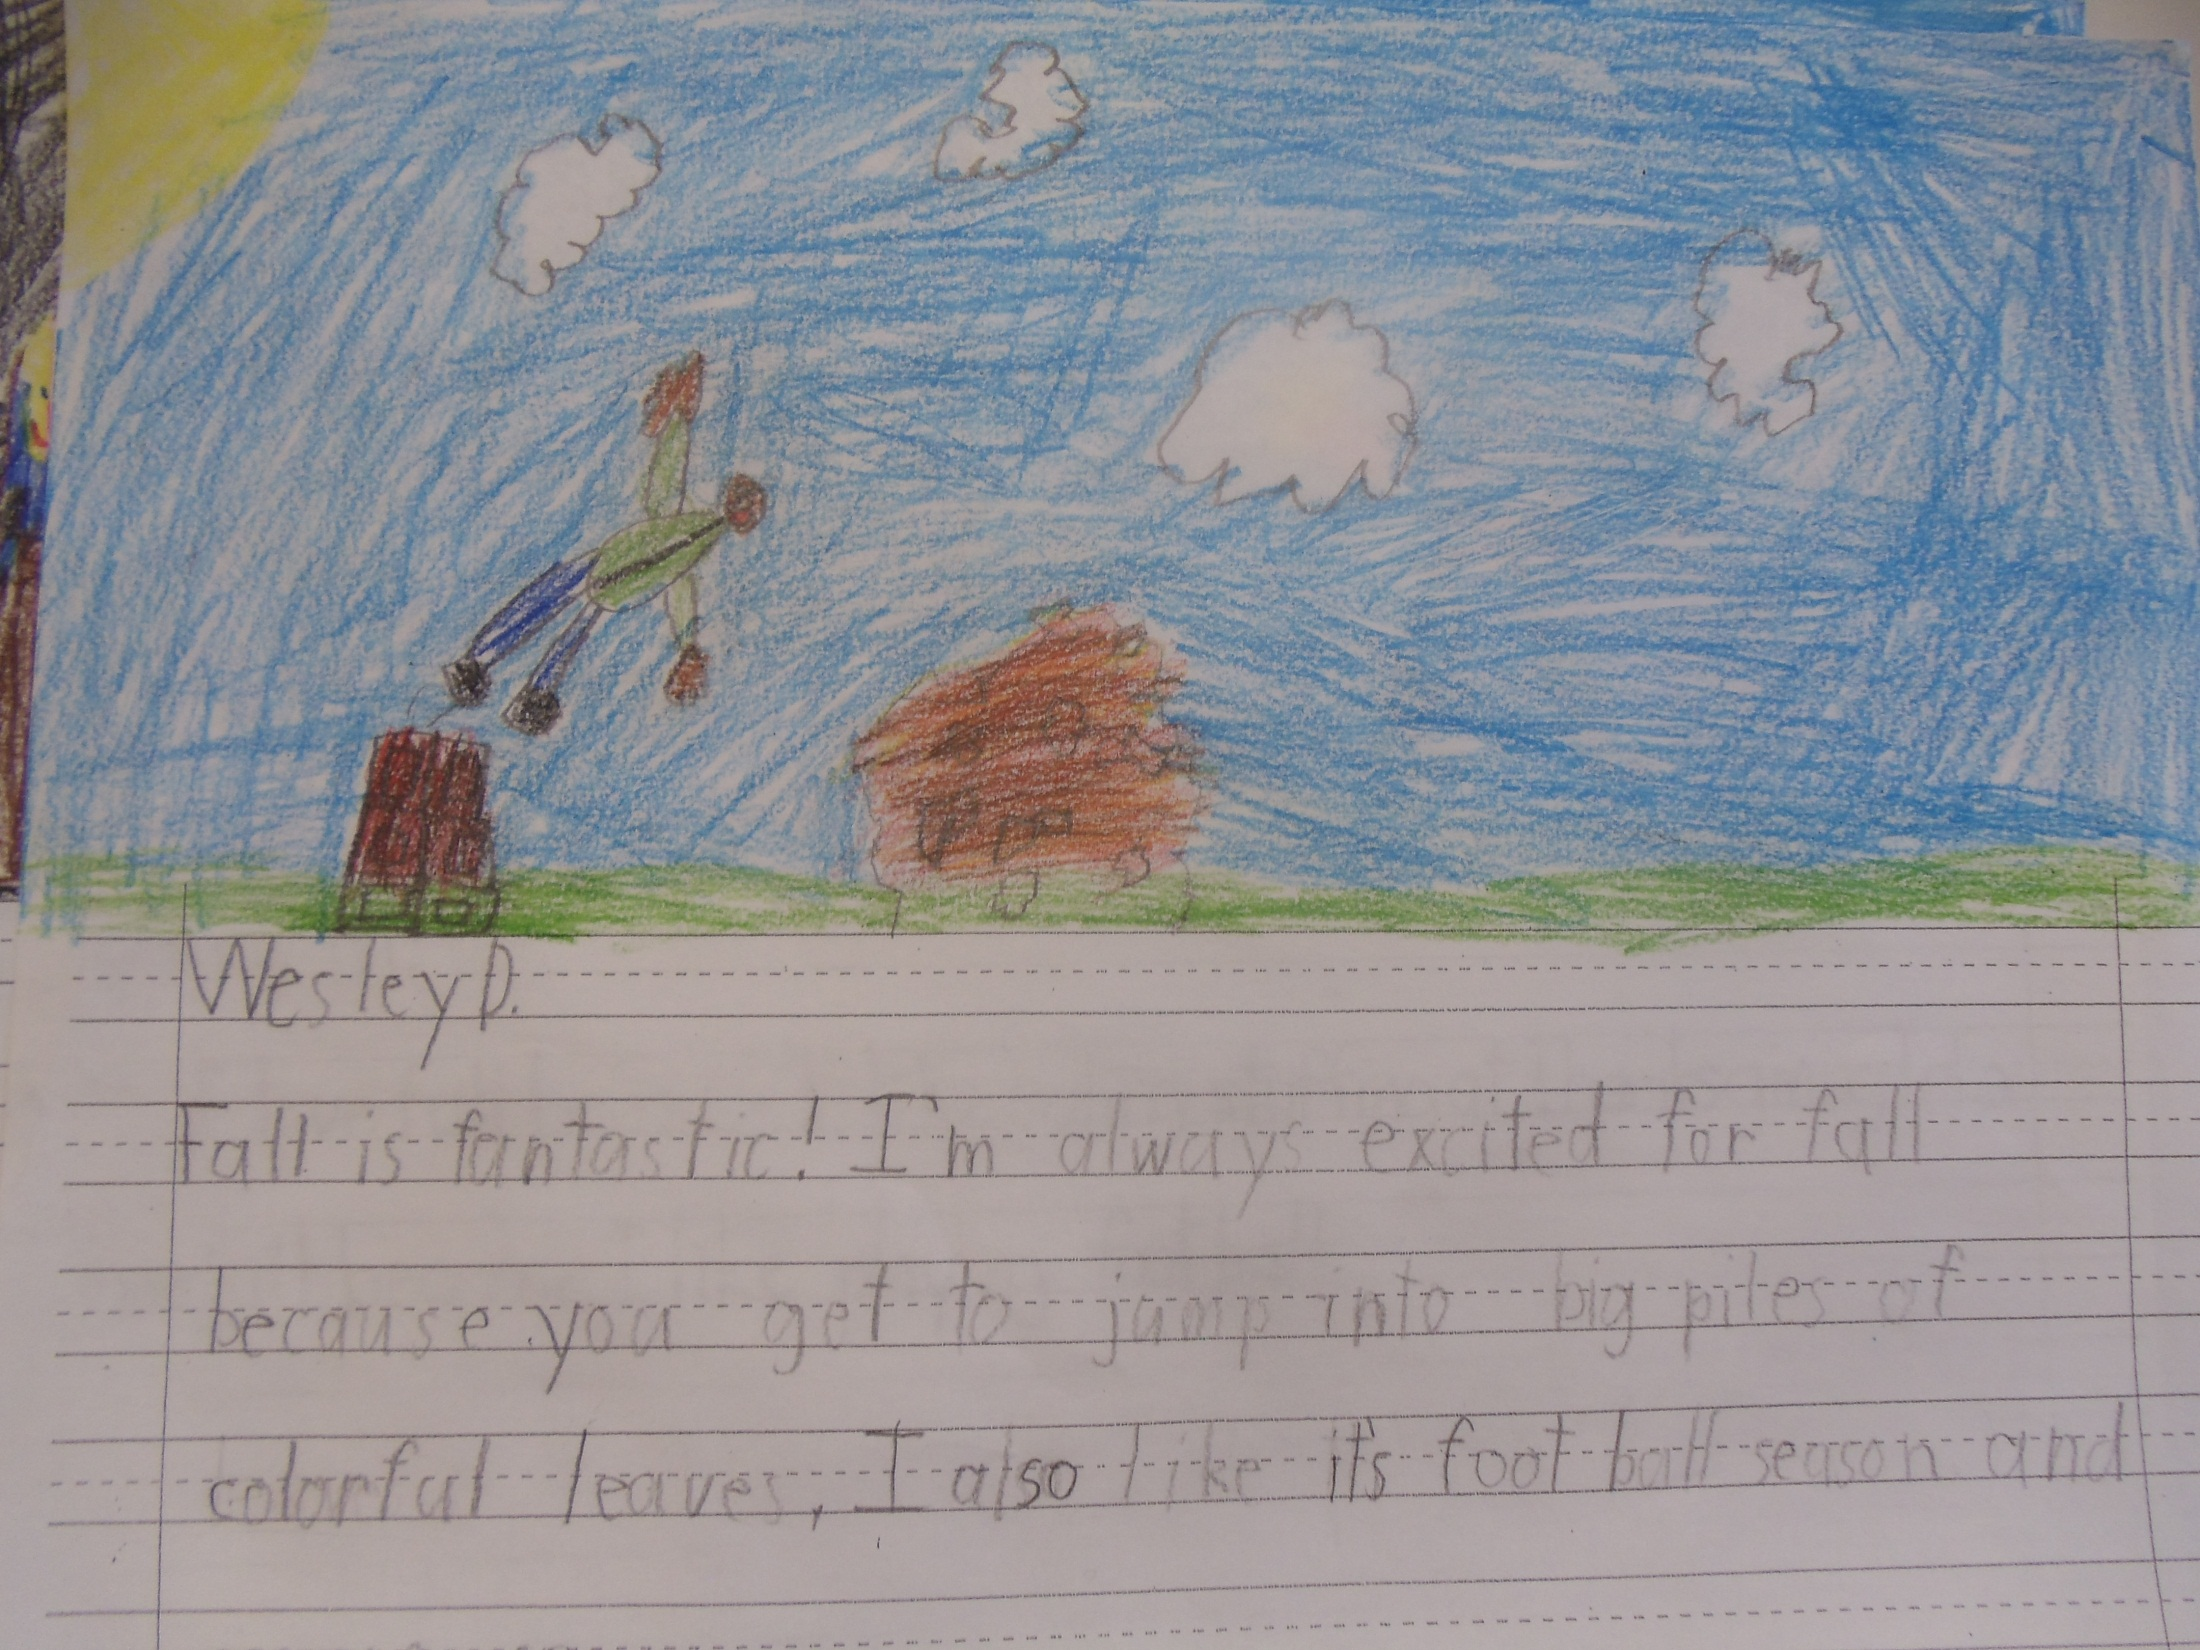 Wesley D.
Fall is fantastic! I'm always excited for fall
because you get to jump into big piles of
colorful leaves, I also like it's foot ball season and